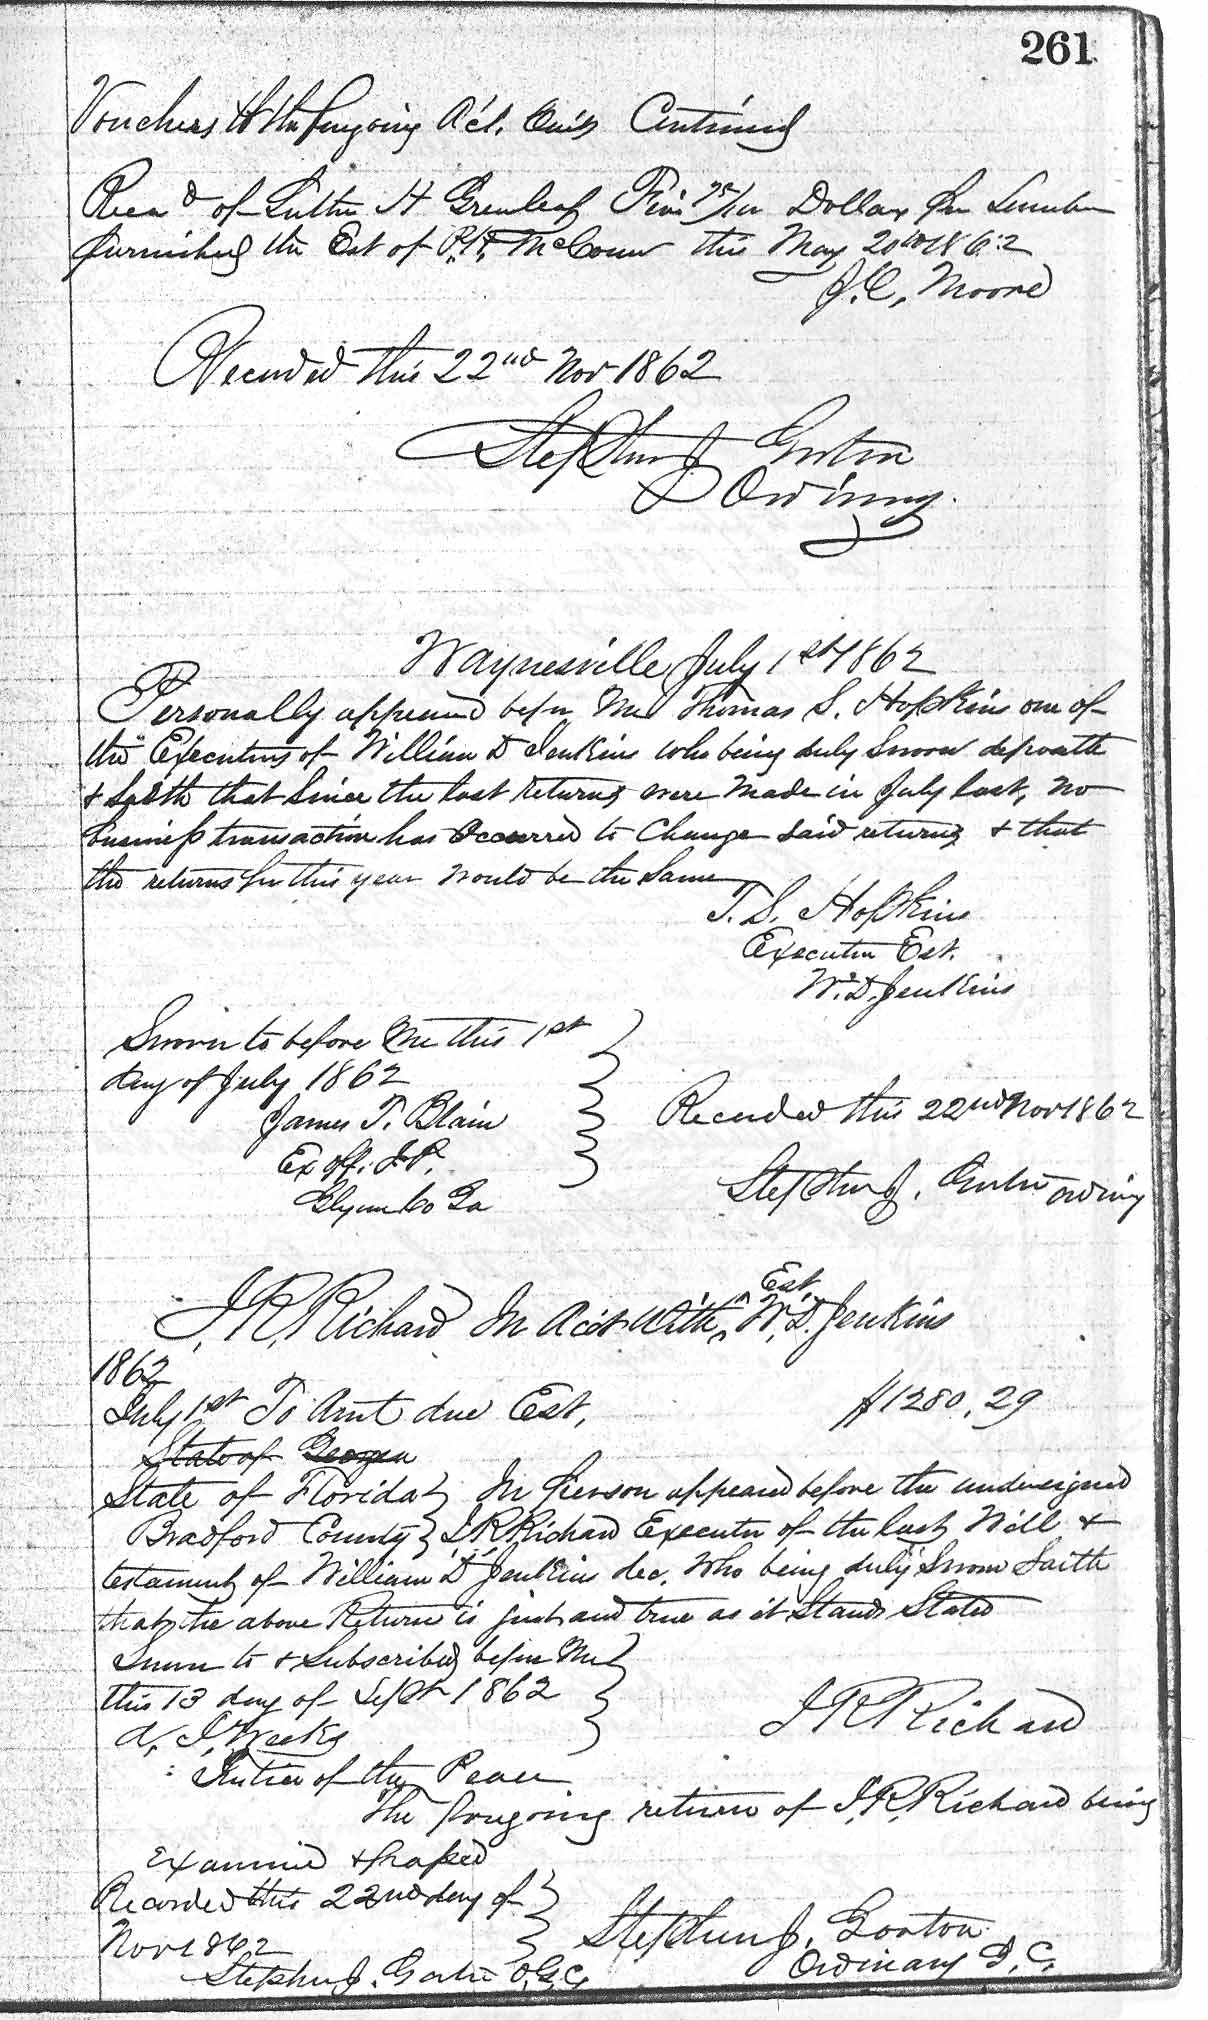 261
Vouchers to the foregoing Act. Continued
Recd of Luther H Greenleaf Five 75/100 Dollars for Lumber
furnished the Est of P. H. McConn this May 20th 1862
J. C. Moore
Recorded this 22nd Nov 1862
Stephen J Gorton
Ordinary
Waynesville July 1st 1862
Personally appeared before Me Thomas S. Hopkins one of
the Executors of William D Jenkins who being duly Sworn deposeth
& Saith that Since the last returns were Made in July last, no
business transaction has Occurred to Change Said returns & that
the returns for this year would be the Same
T. S. Hopkins
Executor Est.
W. D. Jenkins
Sworn to before Me this 1st
day of July 1862
James T. Blain
Ex off. J. P.
Glynn Co Ga
Recorded this 22nd Nov 1862
Stephen J. Gorton Ordinary
J. R. Richard In Acct With Est W. D. Jenkins
1862
July 1st To Amt due Est, $1280.29
State of Georgia
State of Florida } In Person appeared before the undersigned
Bradford County } J. R. Richard Executor of the last Will &
testament of William D Jenkins dec. Who being duly Sworn Saith
that the above Return is just and true as it Stands Stated
Sworn to & Subscribed before Me
this 13 day of Sept 1862
J R Richard
A. J. Weeks
Justice of the Peace
The foregoing return of J. R. Richard being
Examined & passed
Recorded this 22nd day of
Nov 1862
Stephen J. Gorton
Ordinary G. C.
Stephen J. Gorton O. G. C.